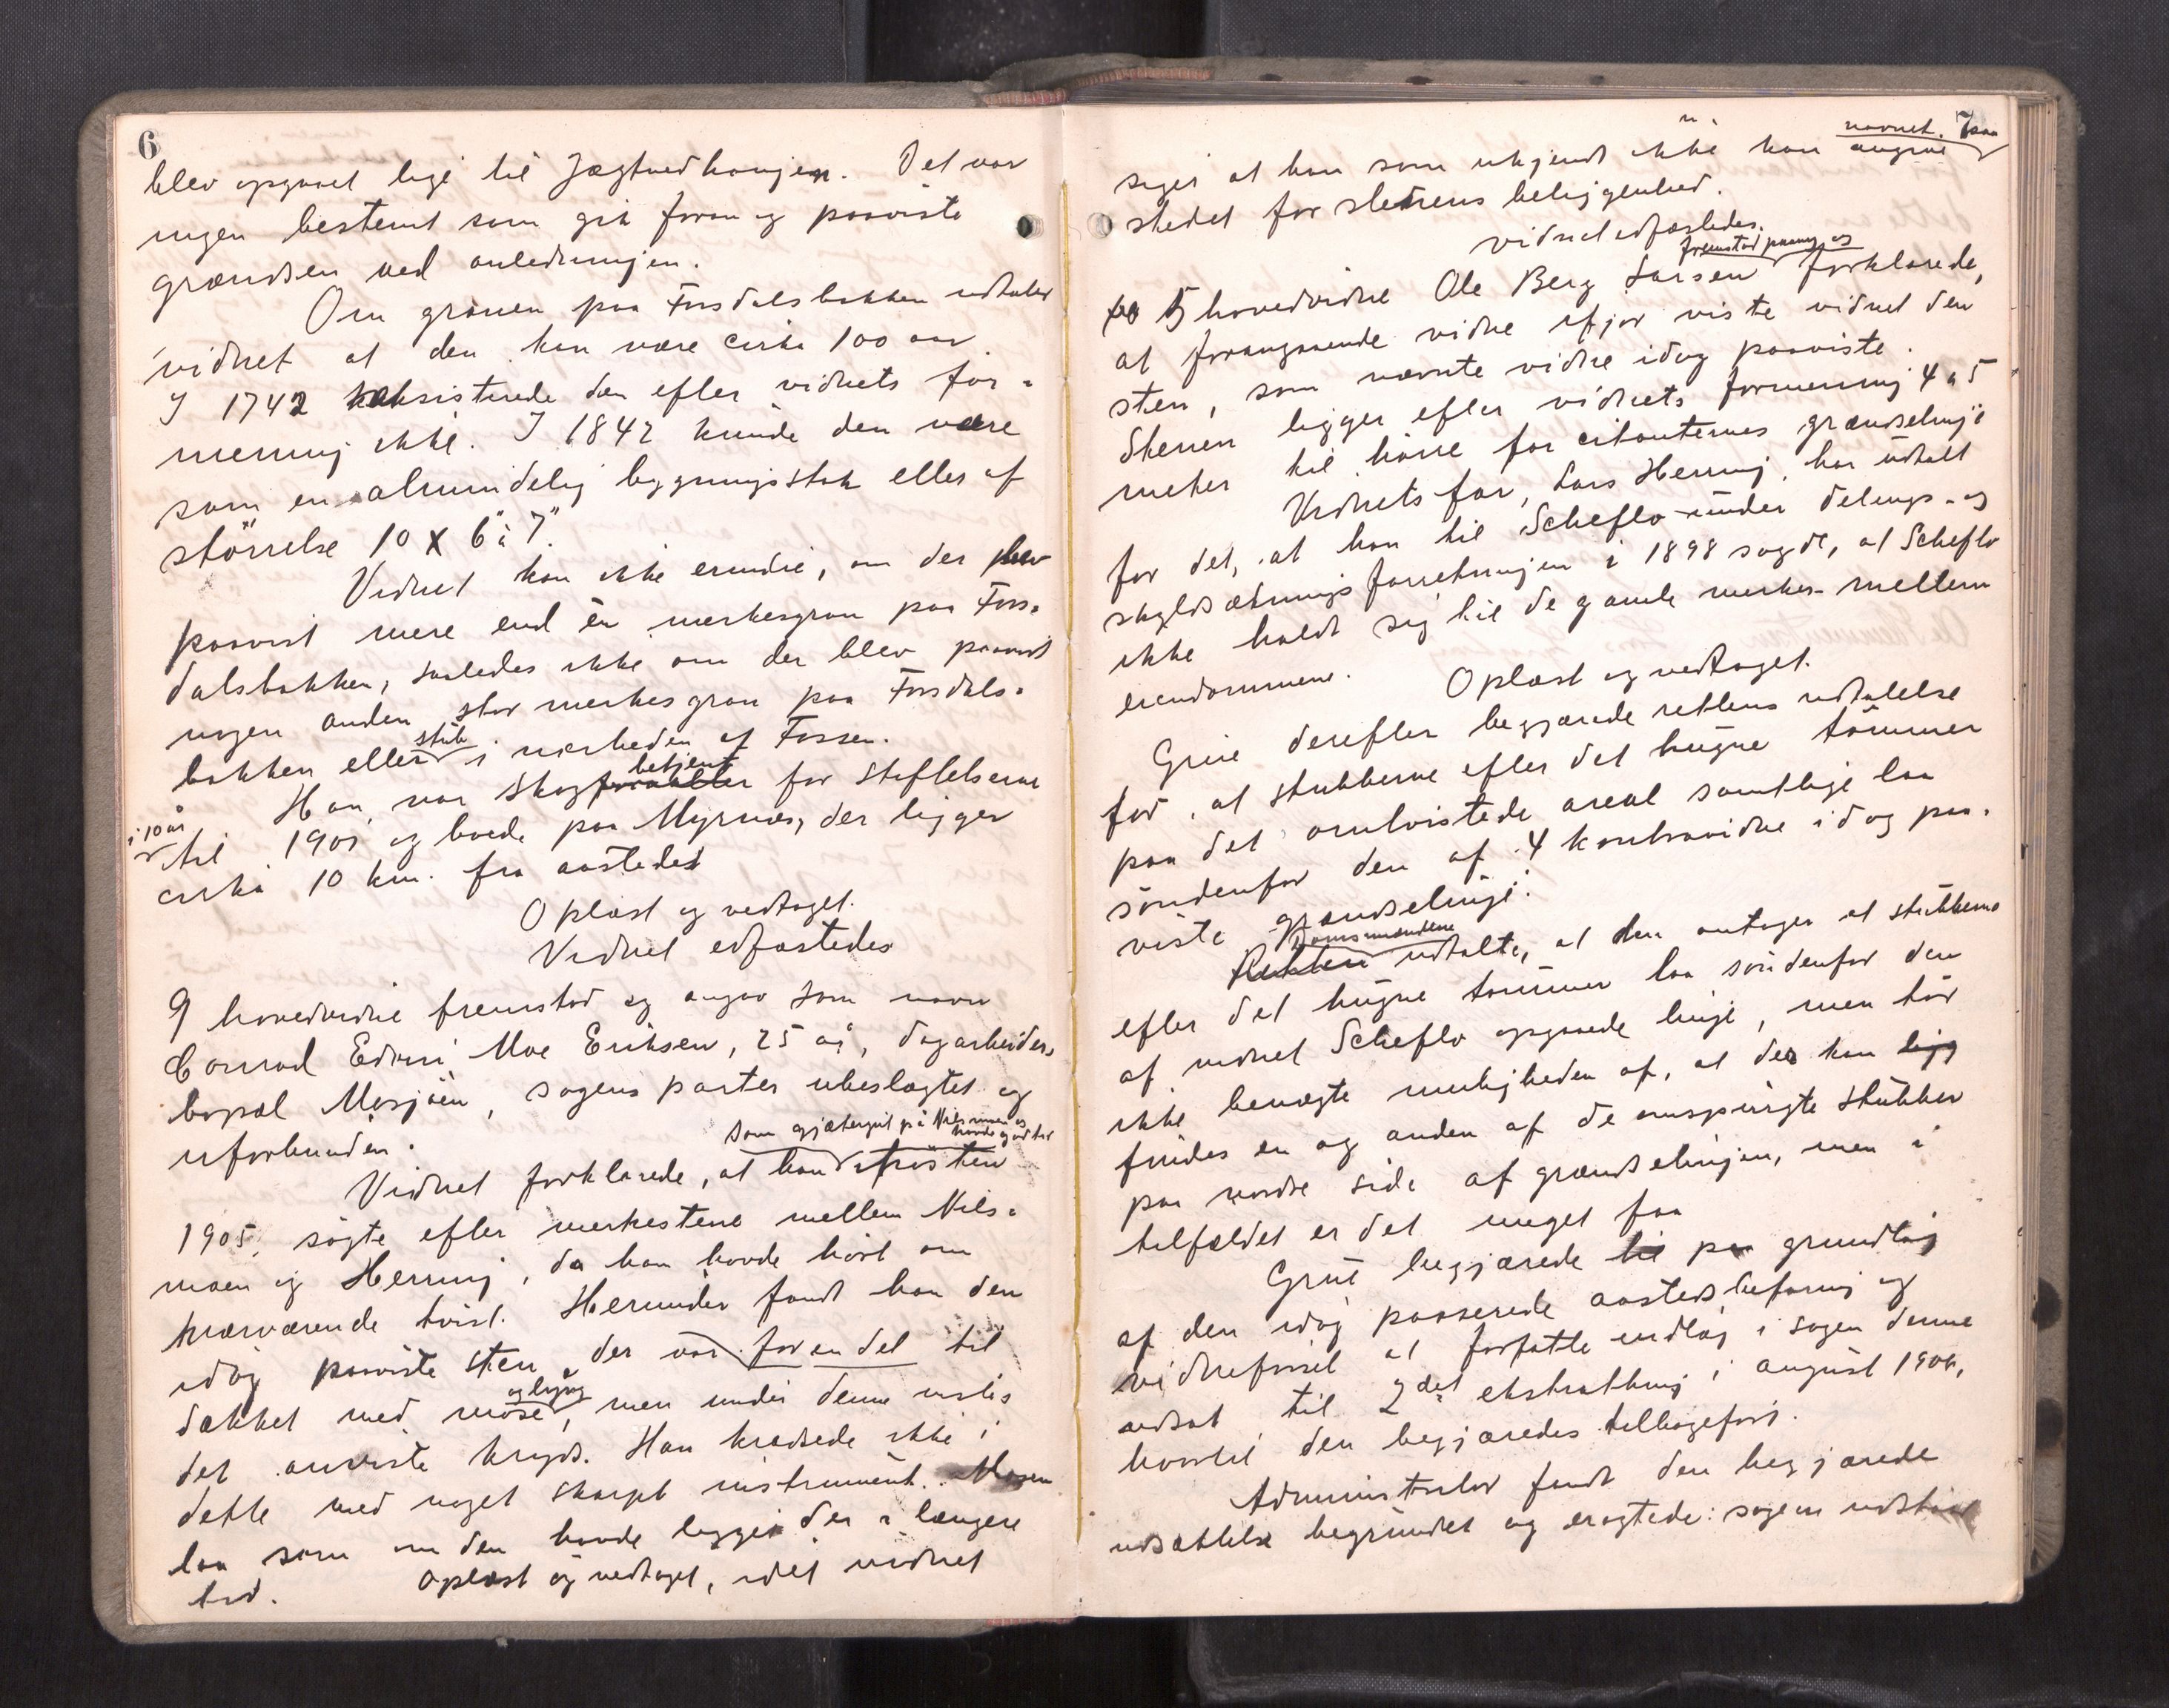 6
blev opgaaet lige til Jægtvedhaugen. Det var
ingen bestemt som gik foran og paaviste
grændsen ved anledningen.
Om granen paa Fossdalsbakken udtaler
vidnet at den kan være cirka 100 aar.
I 1742 eksisterede den efter vidnets for-
mening ikke. I 1842 kunde den være
som en almindelig bygningsstok eller af
störrelse 10 x 6" à 7".
Vidnet kan ikke erindre, om der blev
paavist mere end én merkesgran paa Foss-
dalsbakken, saaledes ikke om der blev paavist
nogen anden stor merkesgran paa Fossdals-
bakken eller stub i nærheden af Fossen.
Han var skogbetjent for Stiftelserne
i 10 år til 1901 og boede paa Myrnes, der ligger
cirka 10 km. fra aastedet
Oplæst og vedtaget.
Vidnet edfæstedes
9 hovedvidne fremstod og angav som navn
Conrad Edvin Moe Eriksen, 25 år, dagarbeider,
bopæl Mosjöen, sagens parter ubeslægtet og
uforbunden.
Vidnet forklarede, at han som gjætergut på Nilsmoen og havde god tid ifrösten
1905, sögte efter merkestene mellem Nils-
moen og Herring, da han havde hört om
nærværende tvist. Herunder fandt han den
idag paaviste sten, der var for en del til
dækket med mose og lyng, men under denne vistes
det anviste kryds. Han kradsede ikke i
dette med noget skarpt instrument. Mosen
laa som om den havde ligget der i længere
tid. Oplæst og vedtaget, idet vidnet
7
siger at han som ukjendt ikke kan angive navnet paa
stedet for stenens beliggenhed.
vidnet edfæstedes.
5 hovedvidne Ole Berg Larsen fremstod paany og forklarede,
at forangaaende vidne ifjor viste vidnet den
sten, som nævnte vidne idag paaviste.
Stenen ligger efter vidnets formening 4 a 5
meter til höire for citanternes grændselinje
Vidnets far, Lars Herring, har udtalt
for det, at han til Scheflo under delings- og
skyldsætningsforretningen i 1898 sagde, at Scheflo
ikke holdt sig til de gamle merker mellem
eiendommene. Oplæst og vedtaget.
Grue derefter begjærede rettens udtalelse
for, at stubberne efter det hugne tömmer
paa det omtvistede areal samtlige laa
söndenfor den af 4 kontravidne idag paa-
viste grændselinje.
Domsmændene udtalte, at den antager at stubberne
efter det hugne tömmer laa söndenfor den
af vidnet Scheflo opgaaede linje, men tör
ikke benægte muligheden af, at der kan
findes en og anden af de omspurgte stubber
paa nordre side af grændselinjen, men i
tilfældet er det meget faa
Grue begjærede paa grundlag
af den idag passerede aastedsbefaring og
vidneförsel at forfatte indlæg i sagen denne
udsat til 2det ekstratting i august 1906,
hvortil den begjæredes tilbageført.
Administrator fandt den begjærede
udsættelse begrundet og eragtede: sagen udstaar